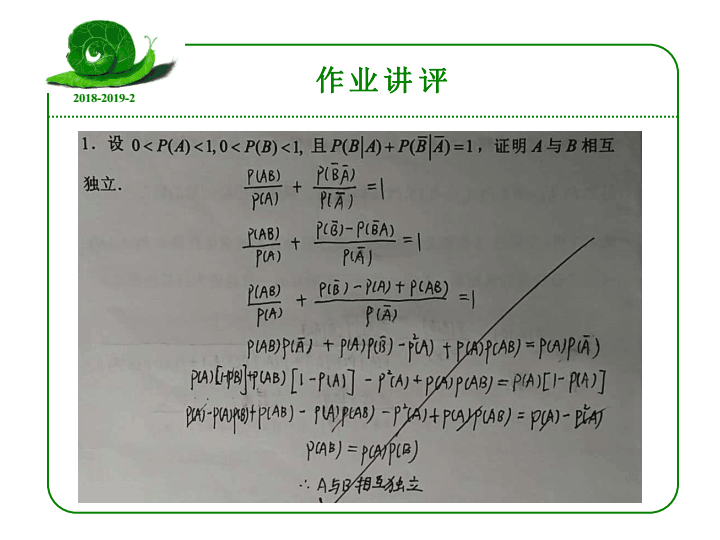 作业讲评
2018-2019-2
1. 设 0<P(A)<1,0<P(B)<1, 且 P(B|A)+P(B̅|A̅)=1, 证明 A 与 B 相互
独立.
P(AB)/P(A) + P(B̅A̅)/P(A̅) =1
P(AB)/P(A) + P(B̅)-P(B̅A)/P(A̅) =1
P(AB)/P(A) + P(B̅)-P(A)+P(AB)/P(A̅) =1
P(AB)P(A̅) + P(A)P(B̅) - P²(A) + P(A)P(AB) = P(A)P(A̅)
P(A)[1-P(B)]+P(AB)[1-P(A)] - P²(A) + P(A)P(AB) = P(A)[1-P(A)]
P(A)-P(A)P(B)+P(AB) - P(A)P(AB) - P²(A) + P(A)P(AB) = P(A) - P²(A)
P(AB) = P(A)P(B)
∴ A与B相互独立